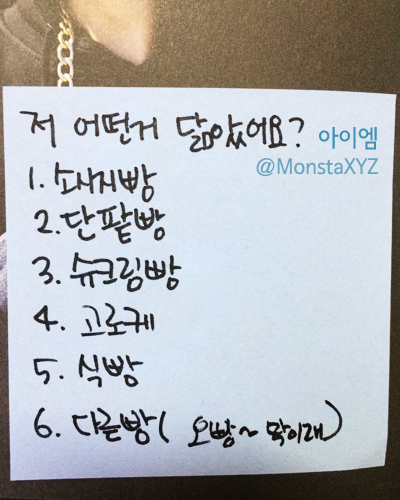 저 어떤거 닮았어요? 아이엠
@MonstaXYZ
1. 소세지빵
2. 단팥빵
3. 슈크림빵
4. 고로케
5. 식빵
6. 다른빵( 오빵~ 막이래)